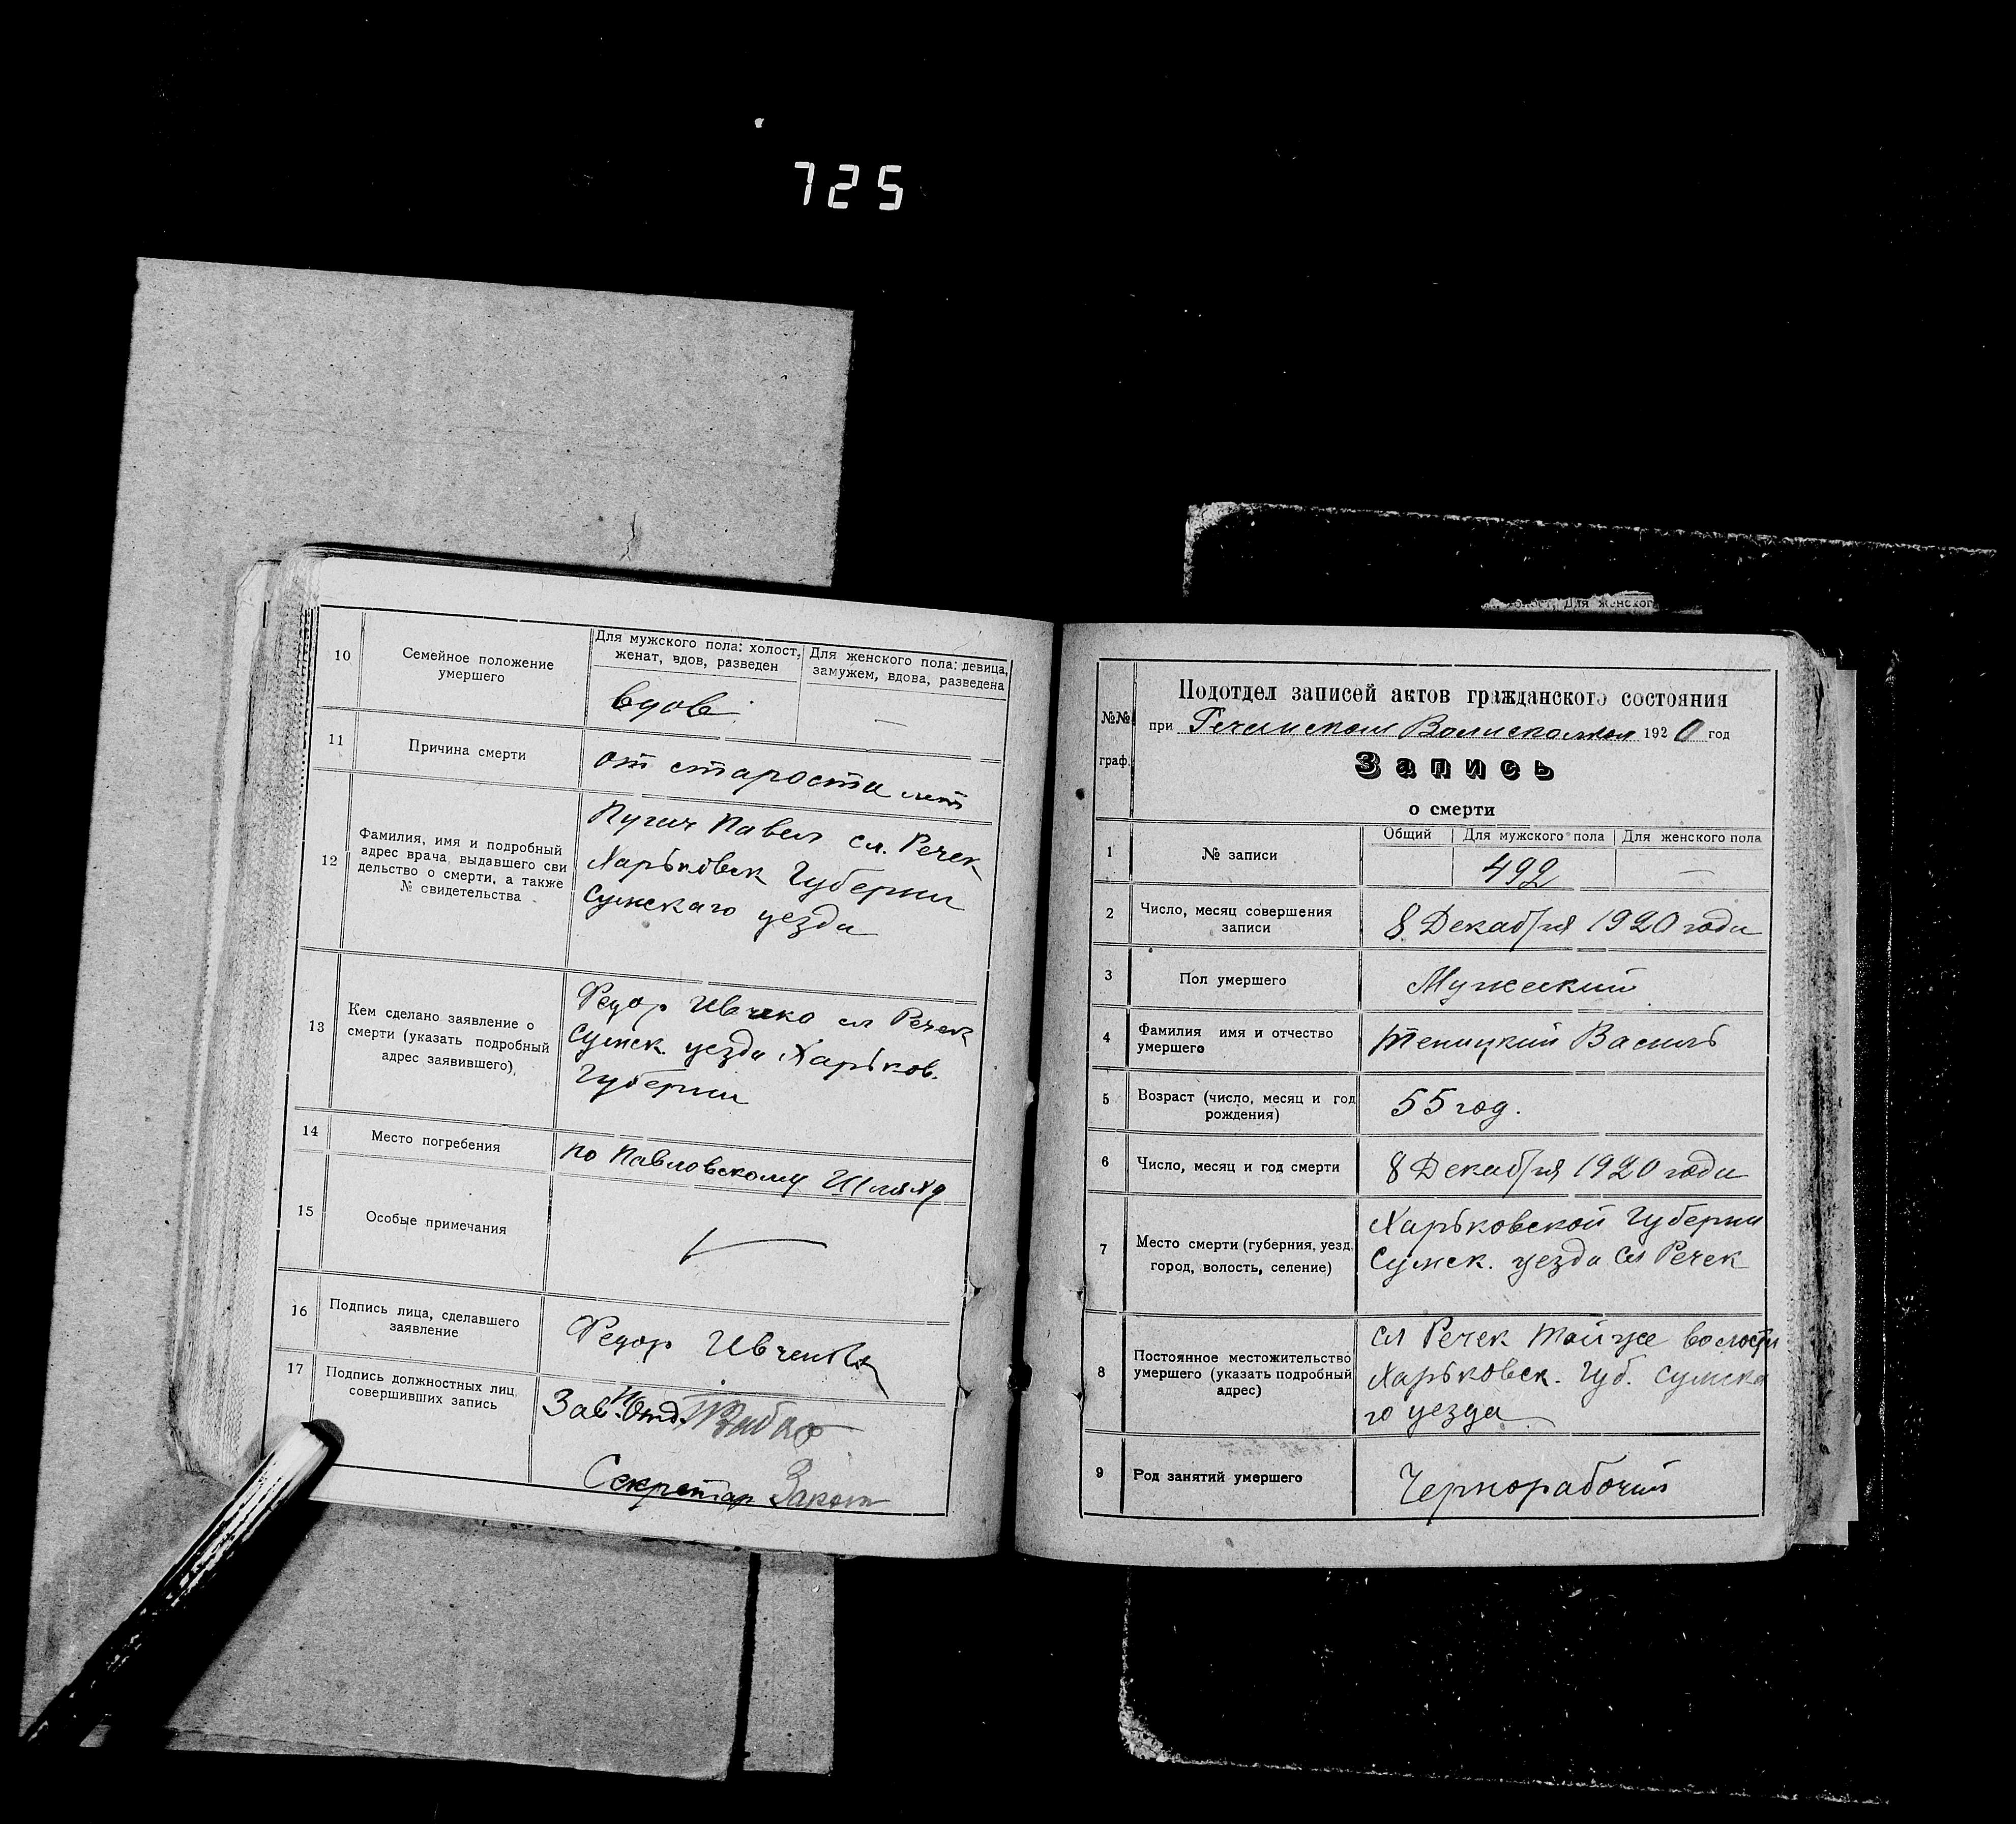 725
10
Семейное положение
умершего
Для мужского пола: холост,
женат, вдов, разведен
Для женского пола: девица,
замужем, вдова, разведена
вдов
—
11
Причина смерти
от старости лет
12
Фамилия, имя и подробный
адрес врача, выдавшего сви
дельство о смерти, а также
№ свидетельства
Павел сл. Речек
Харьковск Губернии
Сумскаго уезда
13
Кем сделано заявление о
смерти (указать подробный
адрес заявившего),
Федор Ивчеко сл Речек
Сумск. уезда Харьков.
Губернии
14
Место погребения
по Павловскому Шляху
15
Особые примечания
16
Подпись лица, сделавшего
заявление
Федор Ивченко
17
Подпись должностных лиц,
совершивших запись
Зав. Отд.
Секретар
Для женског
№№
граф.
Подотдел записей актов гражданского состояния
при Речанском Волисполкоме 1920 год
Запись
о смерти
1
№ записи
Общий
Для мужского пола
Для женского пола
492
—
2
Число, месяц совершения
записи
8 Декабря 1920 года
3
Пол умершего
Мужеский
4
Фамилия имя и отчество
умершего
Теницкий Василь
5
Возраст (число, месяц и год
рождения)
55 год.
6
Число, месяц и год смерти
8 Декабря 1920 года
7
Место смерти (губерния, уезд,
город, волость, селение)
Харьковской Губернии
Сумск. уезда сл Речек
8
Постоянное местожительство
умершего (указать подробный
адрес)
сл Речек той же волости
Харьковск. Губ. Сумска
го уезда
9
Род занятий умершего
Чернорабочий